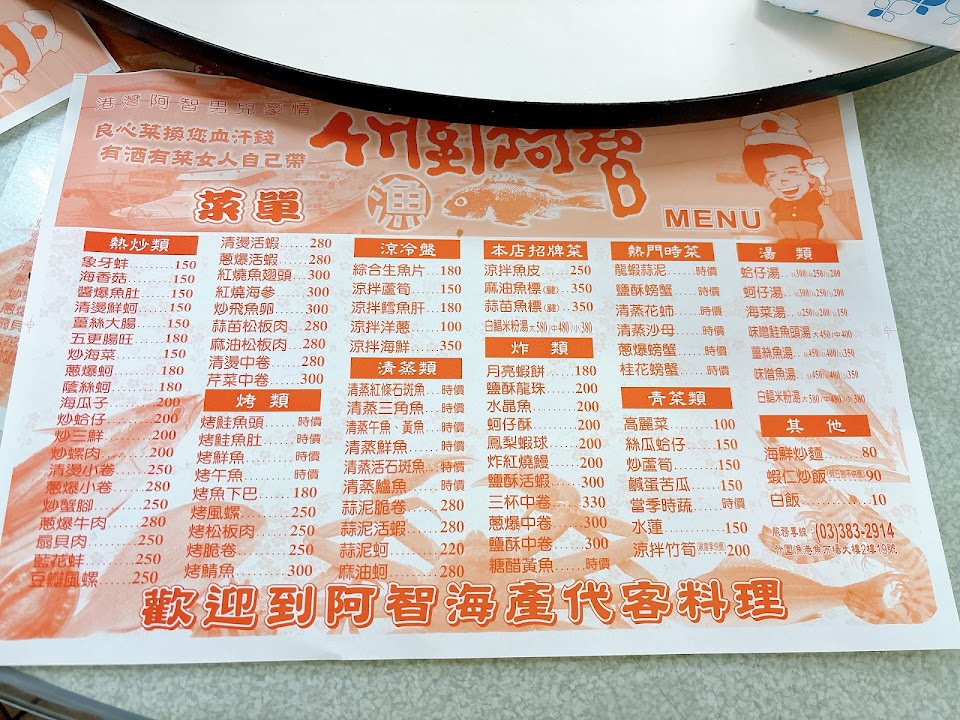 港灣阿智男兒豪情
良心菜換您血汗錢
有酒有菜女人自己帶
阿智
漁
菜單
MENU
熱炒類
象牙蚌......150
海香菇......150
醬爆魚肚......150
清燙鮮蚵......150
薑絲大腸......150
五更腸旺......180
炒海菜......150
蔥爆蚵......180
蔭絲蚵......180
海瓜子......200
炒蛤仔......200
炒三鮮......200
炒螺肉......200
清燙小卷......250
蔥爆小卷......280
炒蟹腳......250
蔥爆牛肉......280
扇貝肉......250
藍花蚌......250
豆瓣風螺......250
清燙活蝦......280
蔥爆活蝦......280
紅燒魚翅頭......300
紅燒海參......300
炒飛魚卵......300
蒜苗松板肉......280
麻油松板肉......280
清燙中卷......280
芹菜中卷......300
烤類
烤鮭魚頭......時價
烤鮭魚肚......時價
烤鮮魚......時價
烤午魚......時價
烤魚下巴......180
烤風螺......250
烤松板肉......250
烤脆卷......250
烤鯖魚......300
涼冷盤
綜合生魚片...180
涼拌蘆筍......150
涼拌鱈魚肝...180
涼拌洋蔥......100
涼拌海鮮......350
清蒸類
清蒸紅條石斑魚...時價
清蒸三角魚......時價
清蒸午魚、黃魚...時價
清蒸鮮魚......時價
清蒸活石斑魚...時價
清蒸鱸魚......時價
蒜泥脆卷......280
蒜泥活蝦......280
蒜泥蚵......220
麻油蚵......280
本店招牌菜
涼拌魚皮......250
麻油魚標(鰾)...350
蒜苗魚標(鰾)...350
白鯧米粉湯大580/中480/小380
炸類
月亮蝦餅......180
鹽酥龍珠......200
水晶魚......200
蚵仔酥......200
鳳梨蝦球......200
炸紅燒鰻......200
鹽酥活蝦......300
三杯中卷......330
蔥爆中卷......300
鹽酥中卷......300
糖醋黃魚......時價
熱門時菜
龍蝦蒜泥......時價
鹽酥螃蟹......時價
清蒸花蚺......時價
清蒸沙母......時價
蔥爆螃蟹......時價
桂花螃蟹......時價
青菜類
高麗菜......100
絲瓜蛤仔......150
炒蘆筍......150
鹹蛋苦瓜......150
當季時蔬......時價
水蓮......150
涼拌竹筍 200
湯類
蛤仔湯...L300/M250/S200
蚵仔湯...L300/M250/S200
海菜湯...L300/M250/S200
味噌鮭魚頭湯大450/中400
薑絲魚湯...L450/M400/S350
味噌魚湯...L450/M400/S350
白鯧米粉湯大580/中480/小380
其他
海鮮炒麵......80
蝦仁炒飯 90
白飯......10
服務專線:(03)383-2914
竹圍漁港魚市場大樓2樓19號
歡迎到阿智海產代客料理